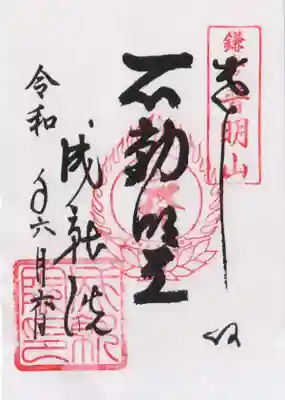 鎌 普明山
奉拝
不動明王
成就院
令和 年六月六日